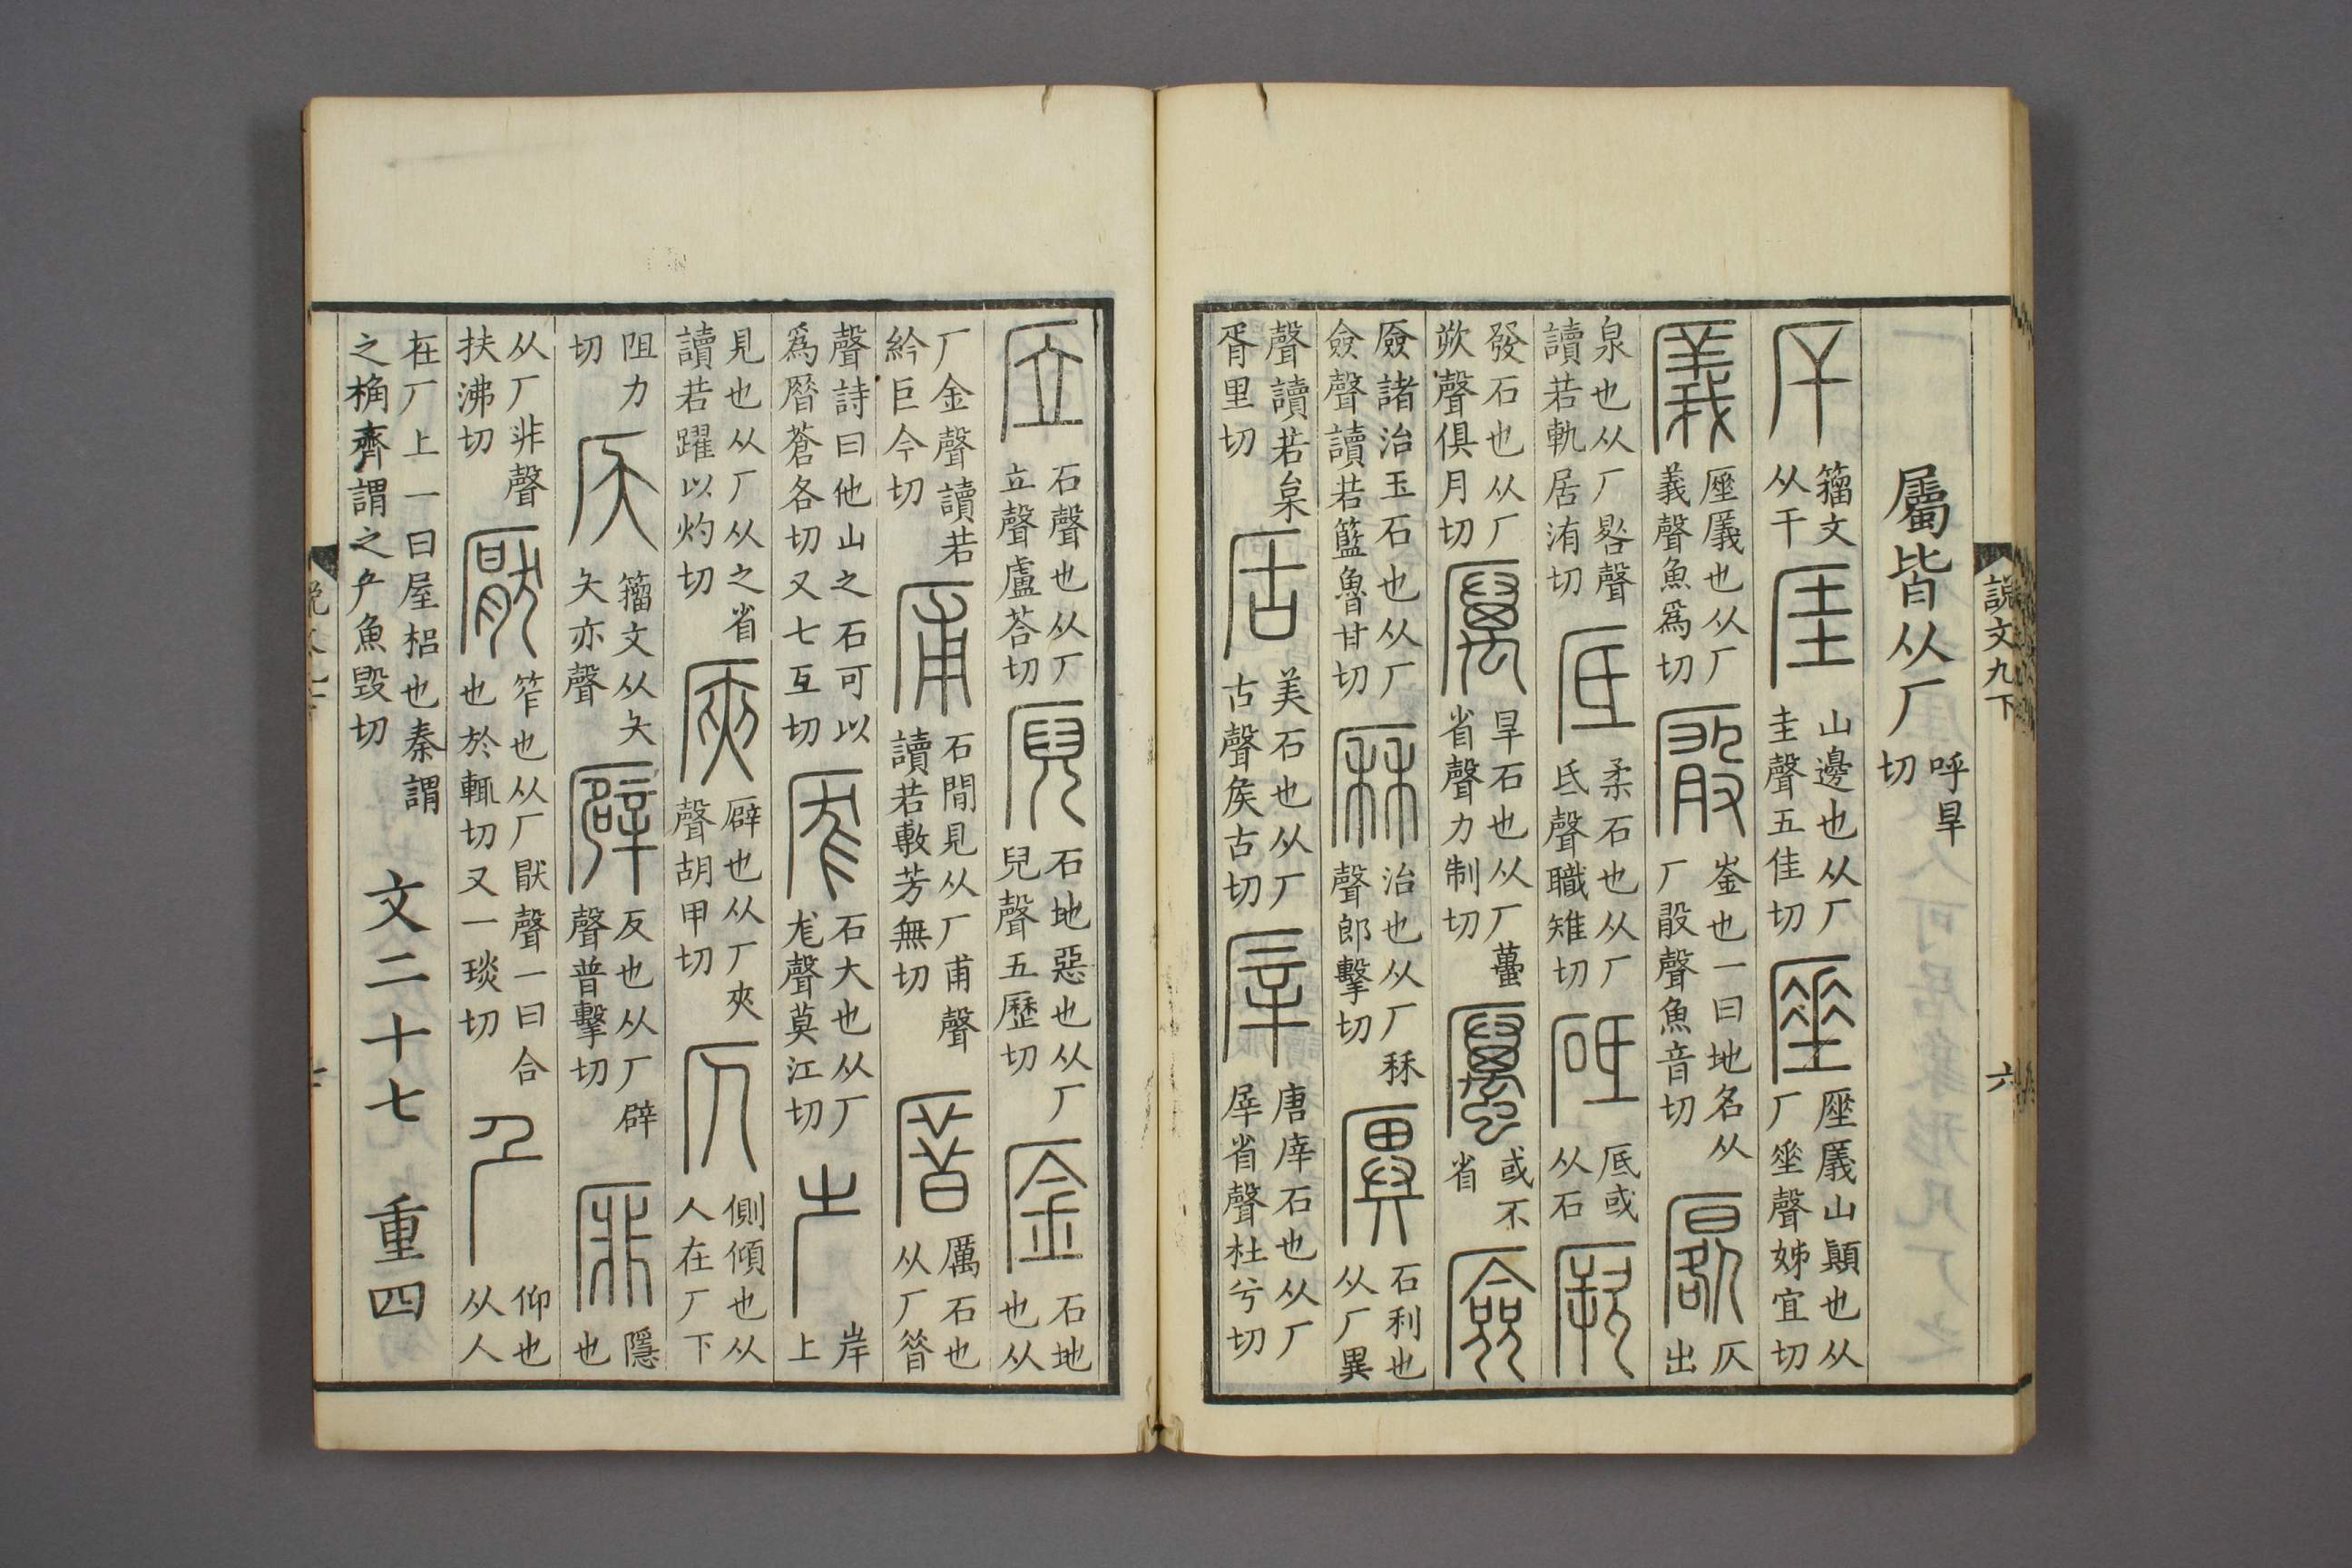 說文九下 六
屬皆从厂 呼旱切
厈 籒文从干 厓 山邊也从厂圭聲五佳切 厜 厜㕒山顚也从厂𡍮聲姊宜切
㕒 厜㕒也从厂義聲魚爲切 厰 崟也一曰地名从厂𣪊聲魚音切 厬 仄出
泉也从厂晷聲讀若軌居洧切 厎 柔石也从厂氐聲職雉切 砥 厎或从石 厥
發石也从厂欮聲俱月切 厲 旱石也从厂蠆省聲力制切 𧓽 或不省 厱
厱諸治玉石也从厂僉聲讀若籃魯甘切 厤 治也从厂秝聲郎擊切 𠪕 石利也从厂異
聲讀若枲胥里切 㕆 美石也从厂古聲矦古切 㕍 唐㕍石也从厂屖省聲杜兮切
㕇 石聲也从厂立聲盧荅切 𠩫 石地惡也从厂兒聲五歷切 㕋 石地也从
厂金聲讀若紟巨今切 㕊 石閒見从厂甫聲讀若敷芳無切 厝 厲石也从厂㫺
聲詩曰他山之石可以爲厝蒼各切又七互切 厖 石大也从厂尨聲莫江切 岸上
見也从厂从之省讀若躍以灼切 㕉 厩也从厂夾聲胡甲切 仄 側傾也从人在厂下
阻力切 籒文从夨夨亦聲 仄也从厂辟聲普擊切 厞 隱也
从厂非聲扶沸切 厭 笮也从厂猒聲一曰合也於輒切又一琰切 厃 仰也从人
在厂上一曰屋梠也秦謂之桷齊謂之厃魚毀切 文二十七 重四